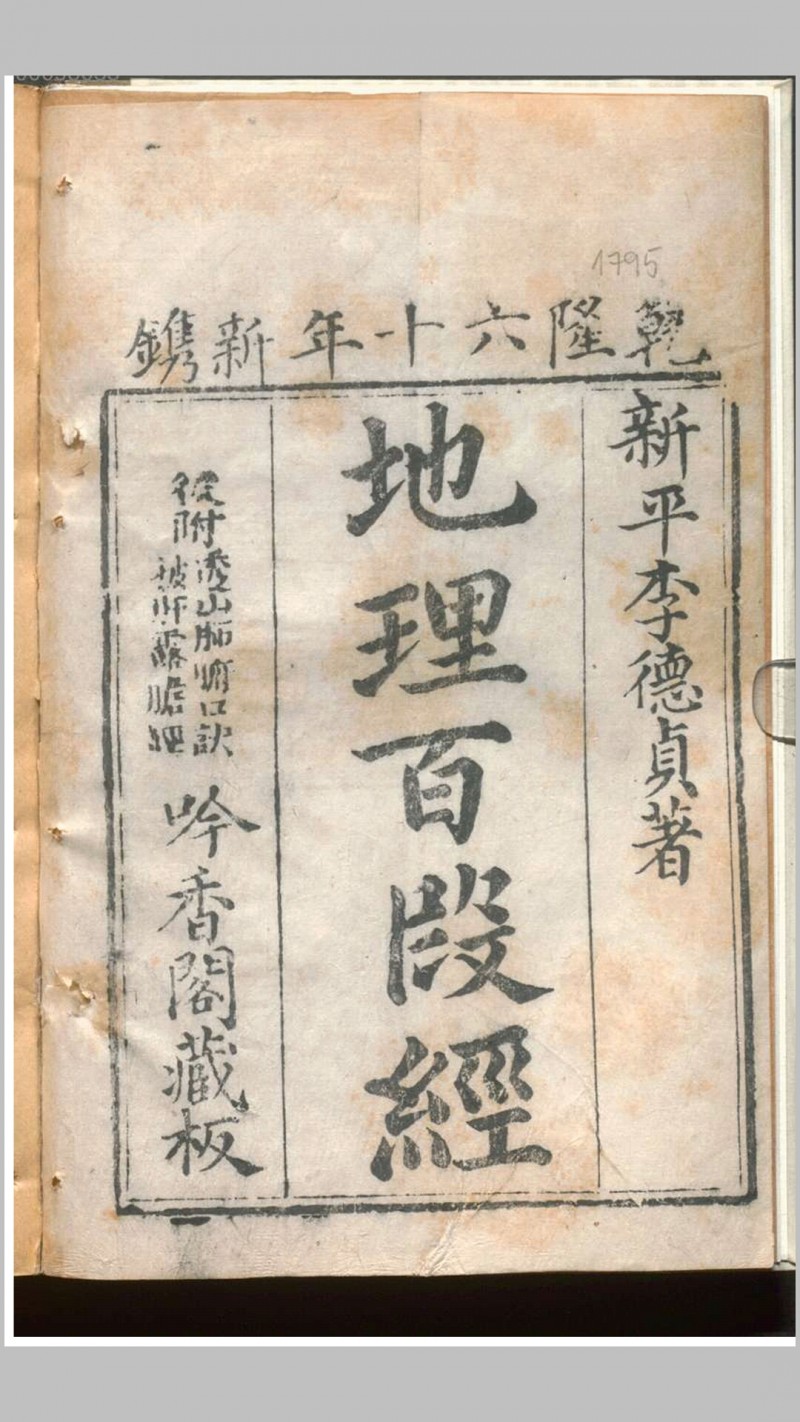 1795
乾隆六十年新鐫
新平李德貞著
地理百段經
後附
透山肺腑口訣
披肝露膽經
吟香閣藏板